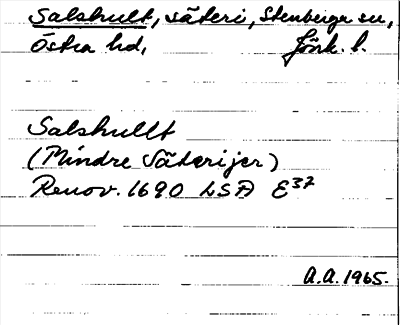 Salshult, säteri, Stenberga sn,
Östra hd, Jönk. l.
Salshullt
(Mindre Säterijer)
Renov. 1690 LSA E37
A.A. 1965.